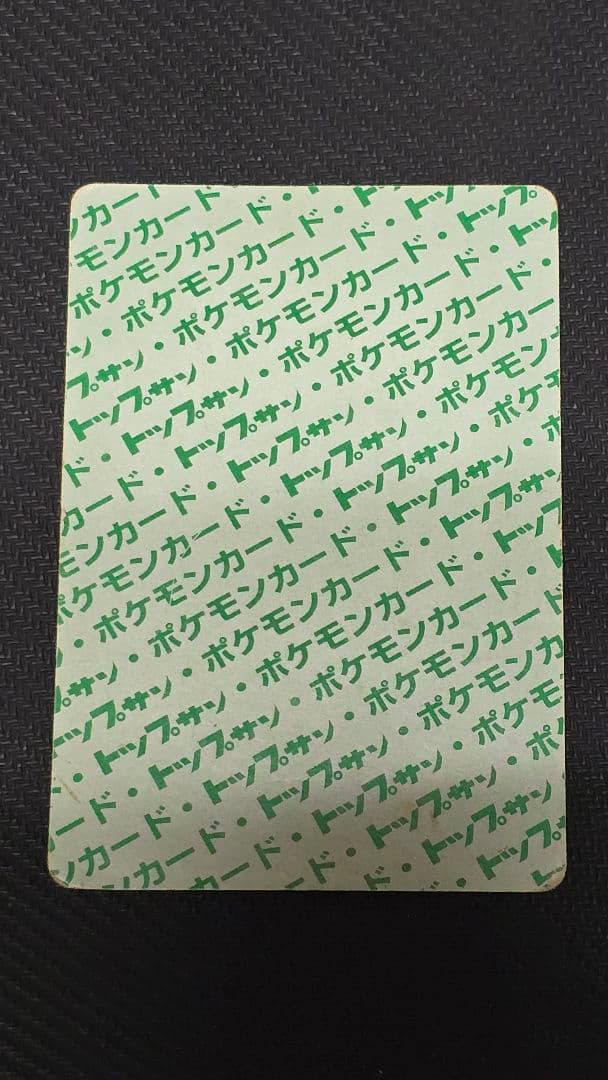 ンカード
モンカード・ト
ポケモンカード・トップ
・ポケモンカード・トップ
ン・ポケモンカード・トッ
プサン・ポケモンカード・
トップサン・ポケモンカード・
・トップサン・ポケモンカー
ド・トップサン・ポケモン
カード・トップサン・ポケモ
ンカード・トップサン・ポケ
モンカード・トップサン・ポ
ケモンカード・トップサン・
・ポケモンカード・トップサン
・ポケモンカード・トップ
プサン・ポケモンカード・ト
トップサン・ポケモンカード・
・トップサン・ポケモンカード
ード・トップサン・ポケモンカ
ンカード・トップサン・ポケモ
ンカード・トップサン・ポ
カード・トップサン・
ド・トップ